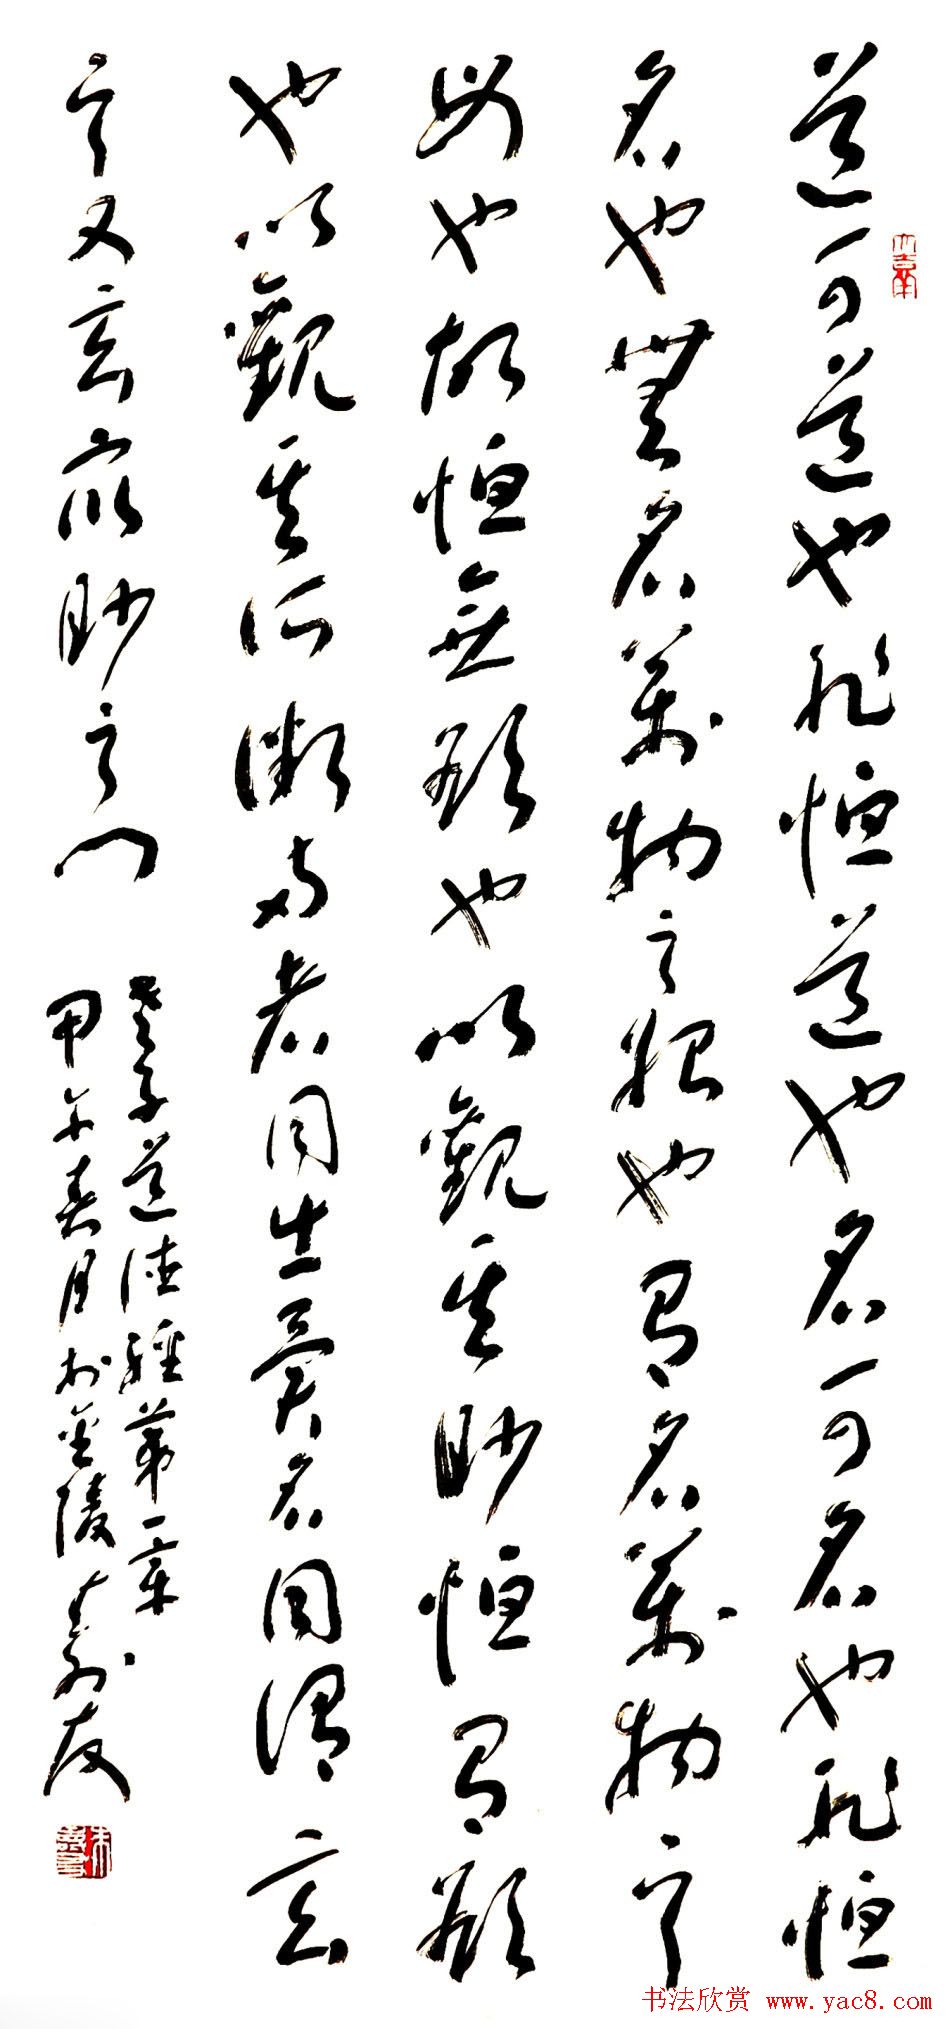 道可道也非恒道也名可名也非恒
名也無名萬物之始也有名萬物之
母也故恒無欲也以觀其眇恒有欲
也以觀其所徼两者同出異名同謂玄
之又玄众眇之门
老子道德經第一章
甲午春月於金陵寿友
书法欣赏 www.yac8.com